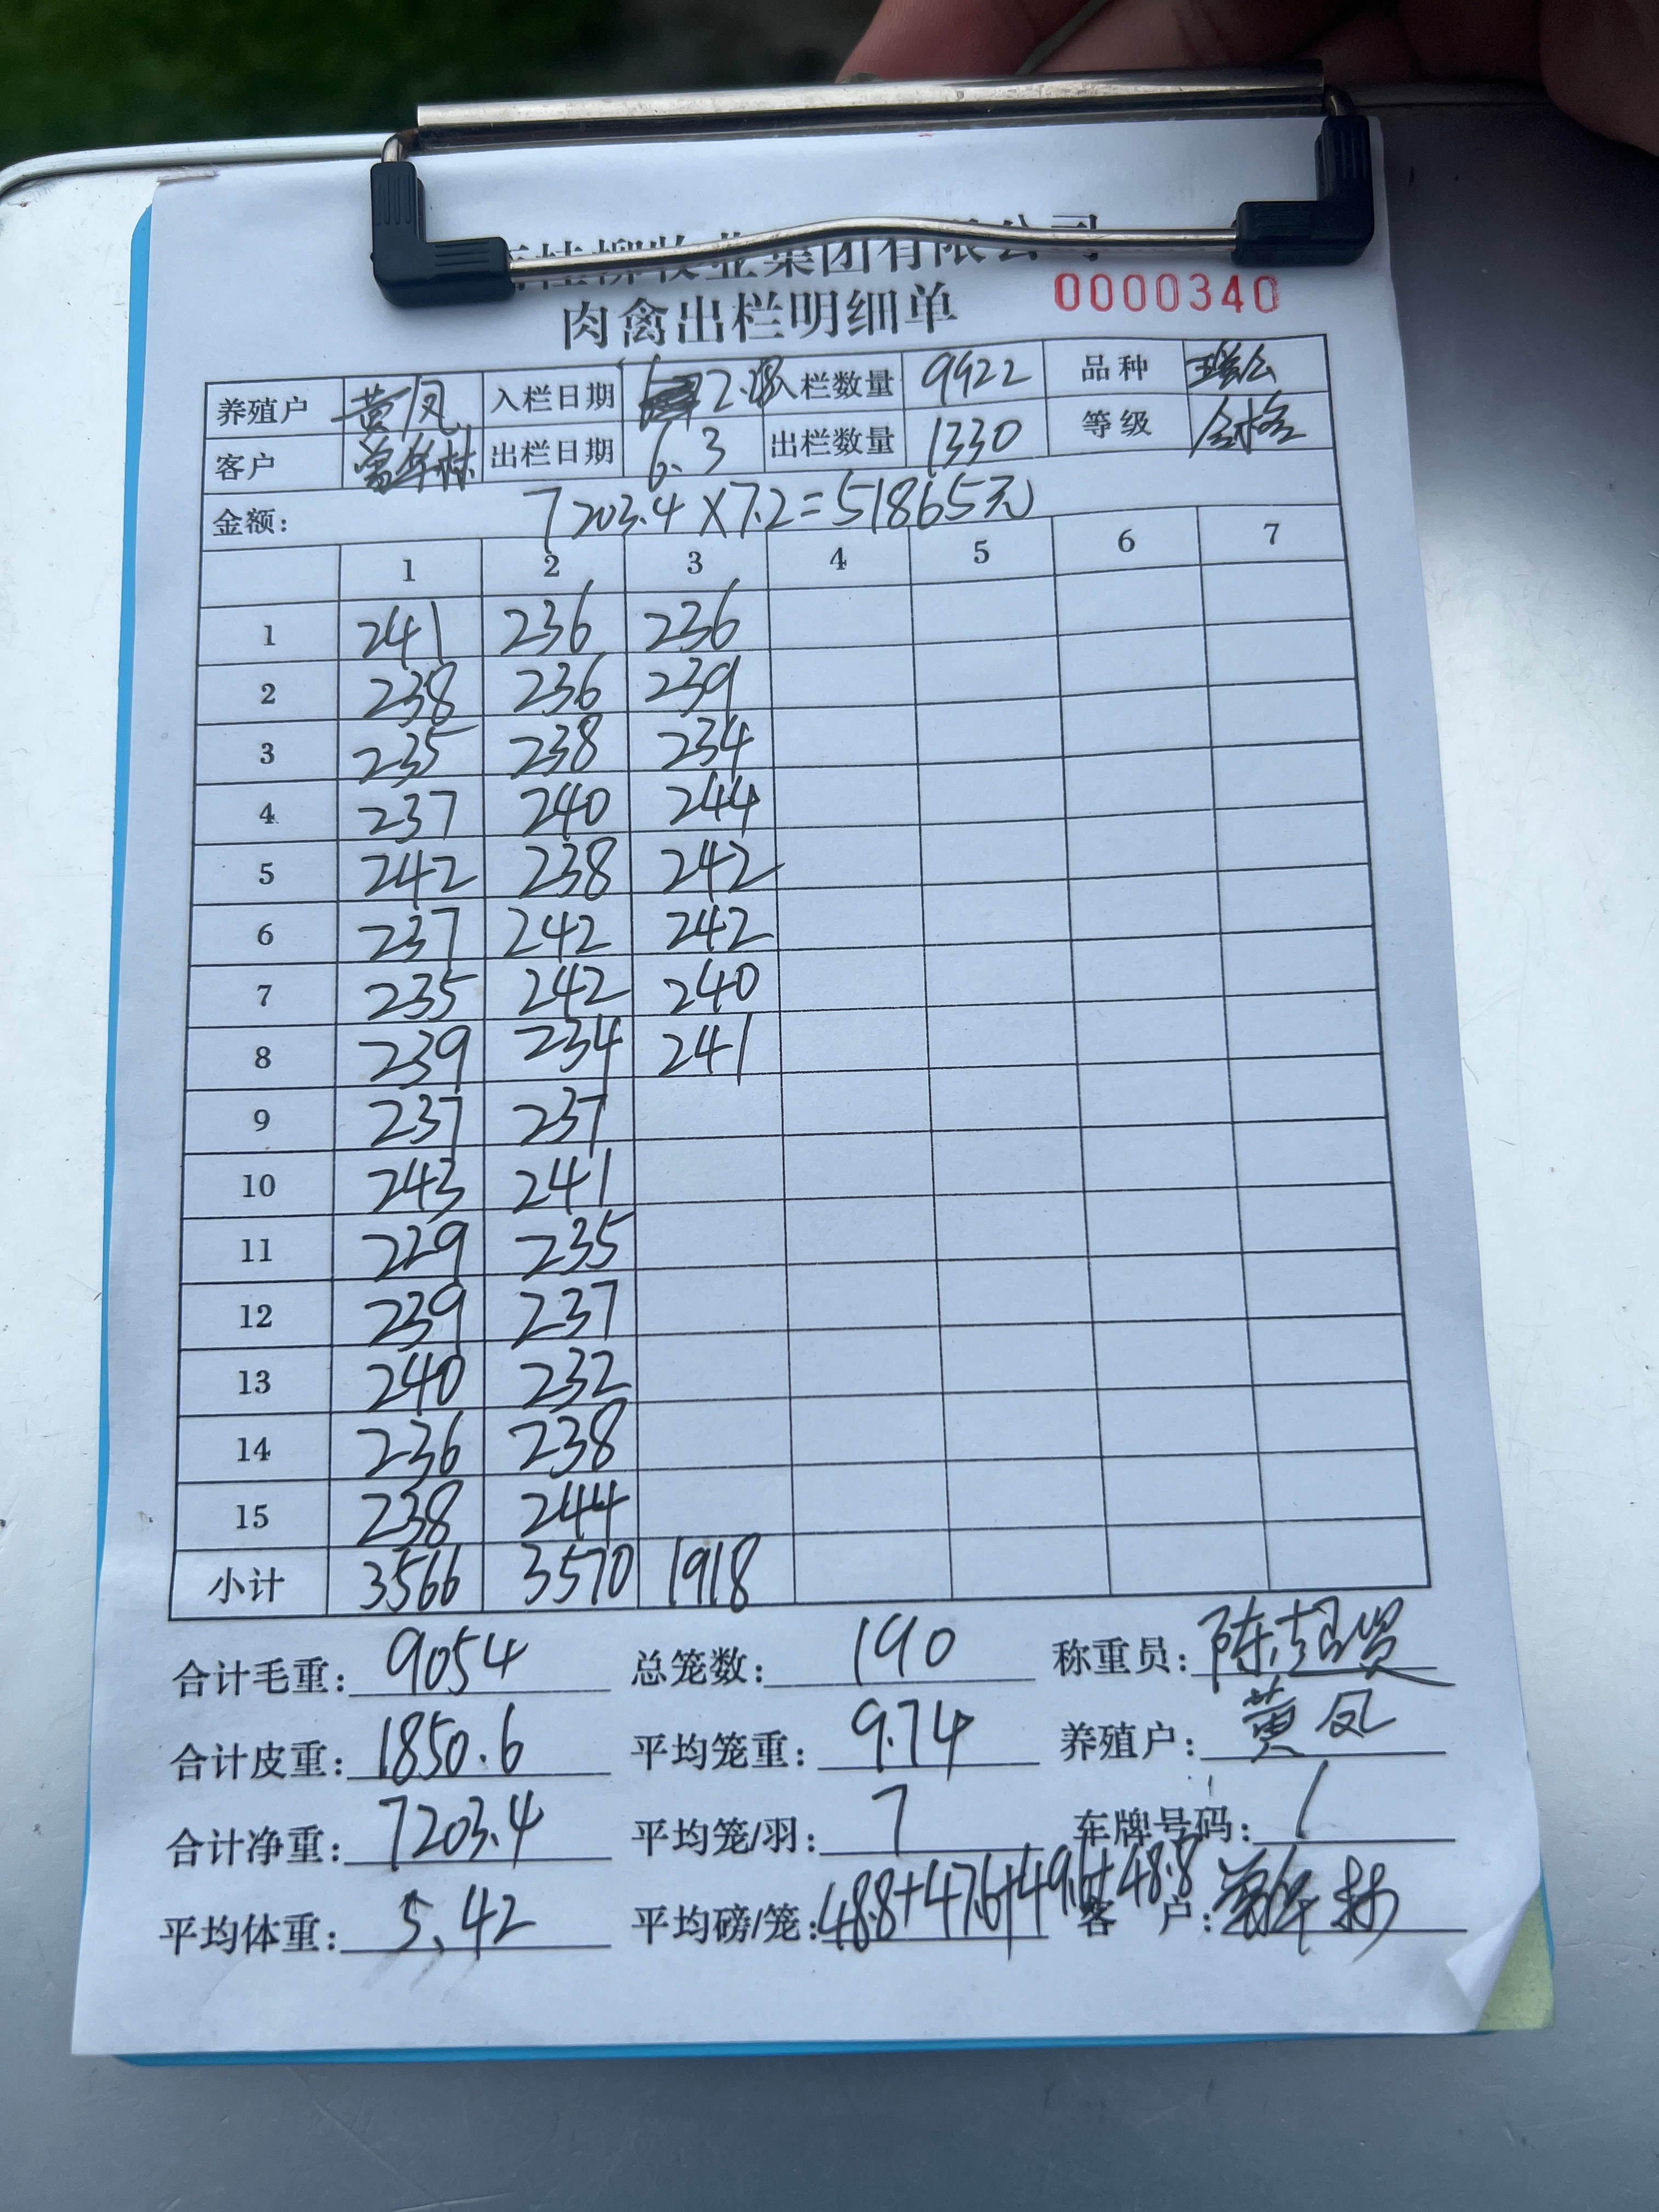 桂柳牧业集团有限公司
肉禽出栏明细单 0000340
养殖户 黄凤 入栏日期 2.28 入栏数量 9922 品种
客户 出栏日期 6.3 出栏数量 1330 等级 合格
金额: 7203.4×7.2=51865元
1 2 3 4 5 6 7
1 241 236 236
2 238 236 239
3 235 238 234
4 237 240 244
5 242 238 242
6 237 242 242
7 235 242 240
8 239 234 241
9 237 237
10 243 241
11 229 235
12 239 237
13 240 232
14 236 238
15 238 244
小计 3566 3570 1918
合计毛重: 9054 总笼数: 190 称重员: 陈超贤
合计皮重: 1850.6 平均笼重: 9.74 养殖户: 黄凤
合计净重: 7203.4 平均笼/羽: 7 车牌号码: /
平均体重: 5.42 平均磅/笼: 48.8+47.6+49.6+48.8 客户: